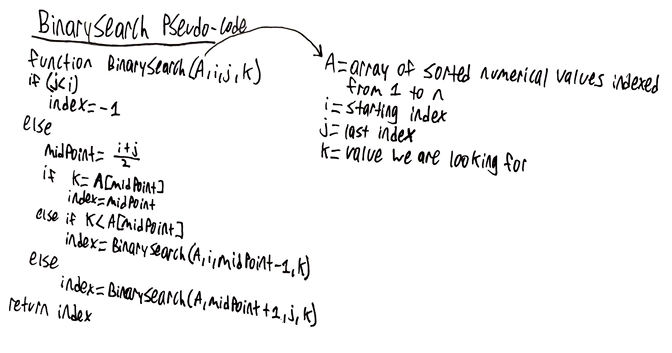 BinarySearch Pseudo-code
function BinarySearch(A,i,j,k)
if (j<i)
index=-1
else
midpoint= i+j/2
if k=A[midpoint]
index=midpoint
else if k<A[midpoint]
index=BinarySearch(A,i,midpoint-1,k)
else
index=BinarySearch(A,midpoint+1,j,k)
return index
A=array of sorted numerical values indexed
from 1 to n
i=starting index
j=last index
k=value we are looking for